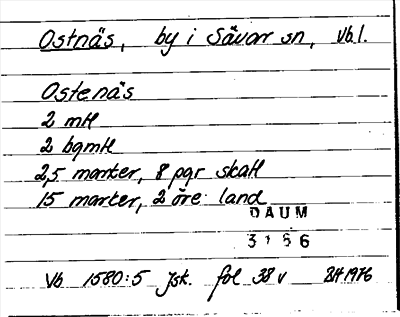 Ostnäs, by i Sävar sn, Vb.l.
Ostenäs
2 mtl
2 bgmtl
2,5 marker, 8 pgr skatt
15 marker, 2 öre land
DAUM
3156
Vb 1580:5 Jsk. fol 38 v BH 1976